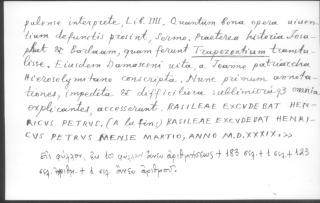 pulense interprete, Lib. IIII. Quantum bona opera uiuen-
tium defunctis prosint, sermo. Praeterea historia Iosa-
phat & Barlaam, quam ferunt Trapezontium transtu-
lisse. Eiusdem Damasceni uita, a Ioanne patriarcha
Hierosolymitano conscripta. Nunc primum annota-
tiones, impedita & difficiliora sublimiora q3 omnia
explicantes, accesserunt. BASILEAE EXCVDEBAT HEN-
RICVS PETRVS. (A la fin:) BASILEAE EXCVDEBAT HENRI-
CVS PETRVS MENSE MARTIO, ANNO M.D.XXXIX.>>
Εἰς φύλλον, ἐκ 10 φύλλων ἄνευ ἀριθμήσεως + 183 σελ. + 1 σελ. + 123
σελ. ἠριθμ. + 1 σελ. ἄνευ ἀριθμοῦ.